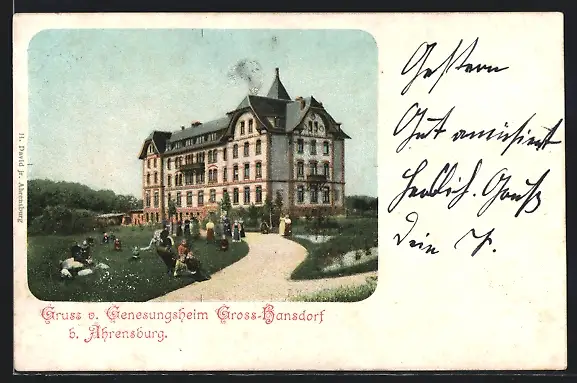 H. David jr. Ahrensburg
Gruss v. Genesungsheim Gross-Hansdorf
b. Ahrensburg.
Gestern
Gut amüsirt
Herzlich. Gruß
Dein